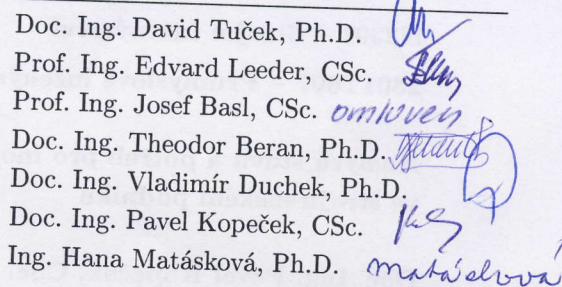 Doc. Ing. David Tuček, Ph.D.
Prof. Ing. Edvard Leeder, CSc.
Prof. Ing. Josef Basl, CSc. omluven
Doc. Ing. Theodor Beran, Ph.D.
Doc. Ing. Vladimír Duchek, Ph.D.
Doc. Ing. Pavel Kopeček, CSc.
Ing. Hana Matásková, Ph.D.